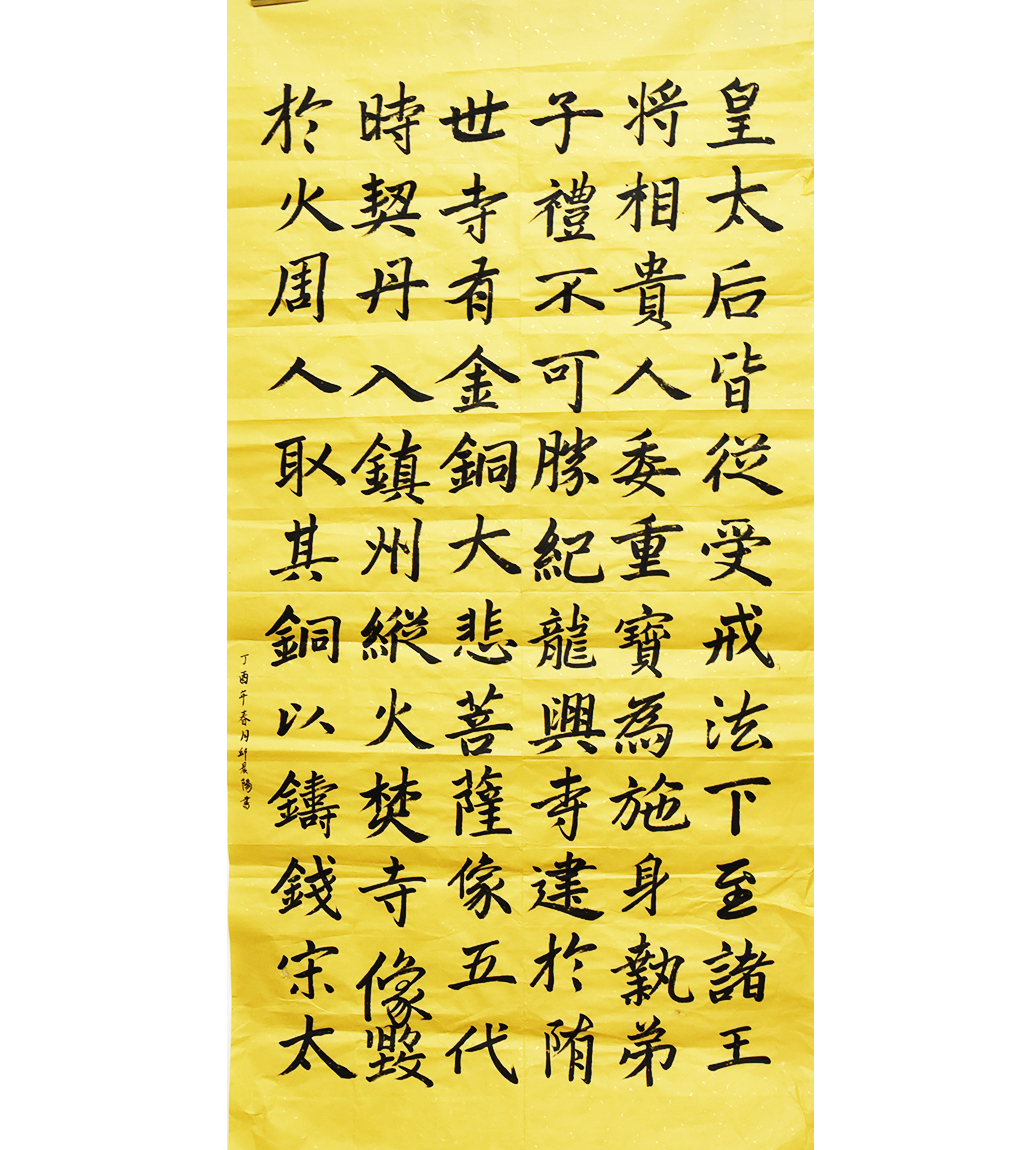 皇太后皆從受戒法下至諸王
将相貴人委重寶為施身執弟
子禮不可勝紀龍興寺建於陏
世寺有金銅大悲菩薩像五代
時契丹入鎮州縱火焚寺像毀
於火周人取其銅以鑄錢宋太
丁酉年春月邱晨陽書